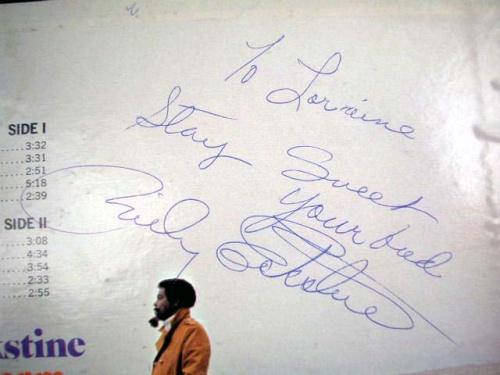 To Lorraine
Stay Sweet
Your bud
Billy Eckstine
SIDE I
3:32
3:31
2:51
5:18
2:39
SIDE II
3:08
4:34
3:54
2:33
2:55
kstine